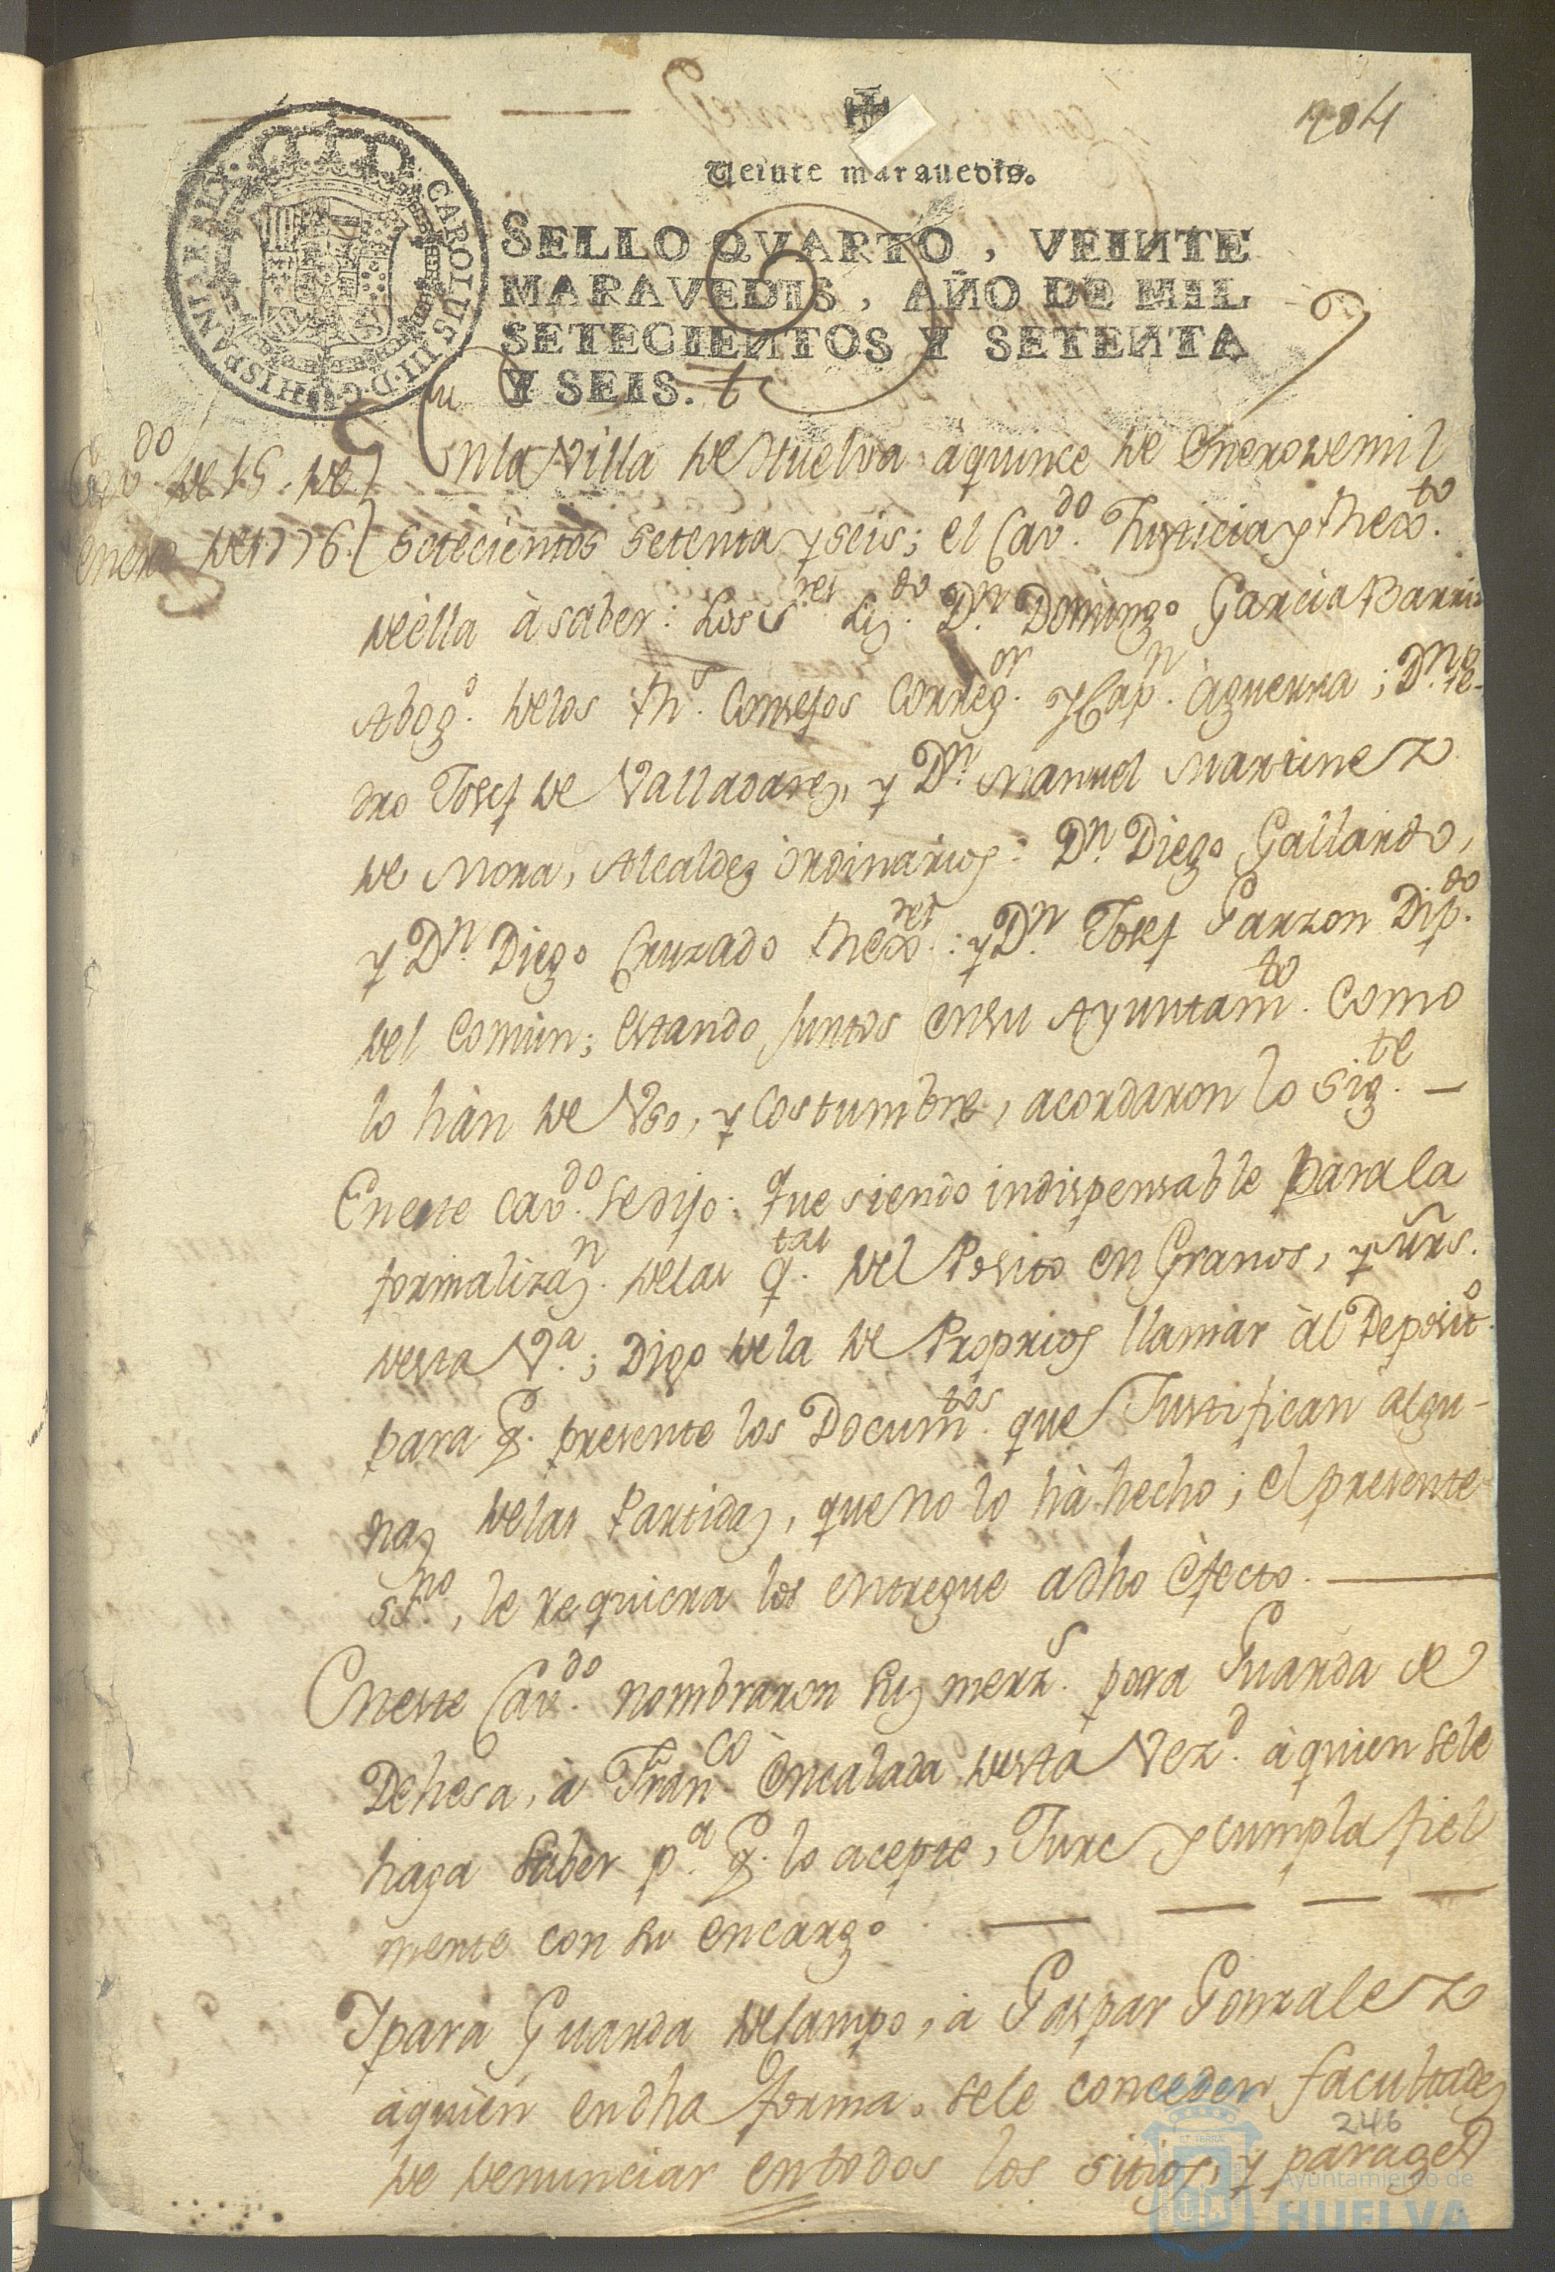 184
Veinte maravedis.
SELLO QVARTO, VEINTE
MARAVEDIS, AÑO DE MIL
SETECIENTOS Y SETENTA
Y SEIS.
CAROLUS III D G HISPANIAR REX
Cavdo de 15 de
enero de 1776.
En la Villa de Huelva à quince de Enero de mil
setecientos setenta y seis; el Cavdo. Justicia y Rexto.
de ella à saber: Los Sres Liz.do Dn. Domingo Garcia Barrio
Abogo. de los Rs. Consejos Corregor. y Capn. à guerra; Dn. Pe-
dro Josef de Valladares, y Dn. Manuel Martinez
de Mora, Alcaldes òrdinarios: Dn. Diego Gallardo,
y Dn. Diego Cruzado Rexres.: y Dn. Josef Garzon Dipdo.
del Comùn; estando Juntos en su Ayuntamto. como
lo hàn de Uso, y Costumbre, acordaron lo sigte. —
En este Cavdo. se dijo: que siendo indispensable para la
formalizan. de las qtas. del Posito en Granos, y mrs.
de esta Va.; Digo de la de Proprios llamàr àl Deposito.
para q. presente los Documtos. que Justifican algu-
nas de las Partidas, que no lo hà hecho; el presente
ssno., le requiera los entregue a dho èfecto. —
En este Cavdo. nombraron sus merzs. para Guarda de
Dehesa, à Franco. Encalada de esta Vezd. à quien se le
haga saber pa. q. lo acepte, Jure y cumpla fiel
mente con su encargo — — — —
Y para Guarda del campo, à Gaspar Gonzalez
àquien en dha forma, se le conceden facultades
de denunciar en todos los sitios, y parages
246
Ayuntamiento de
HUELVA